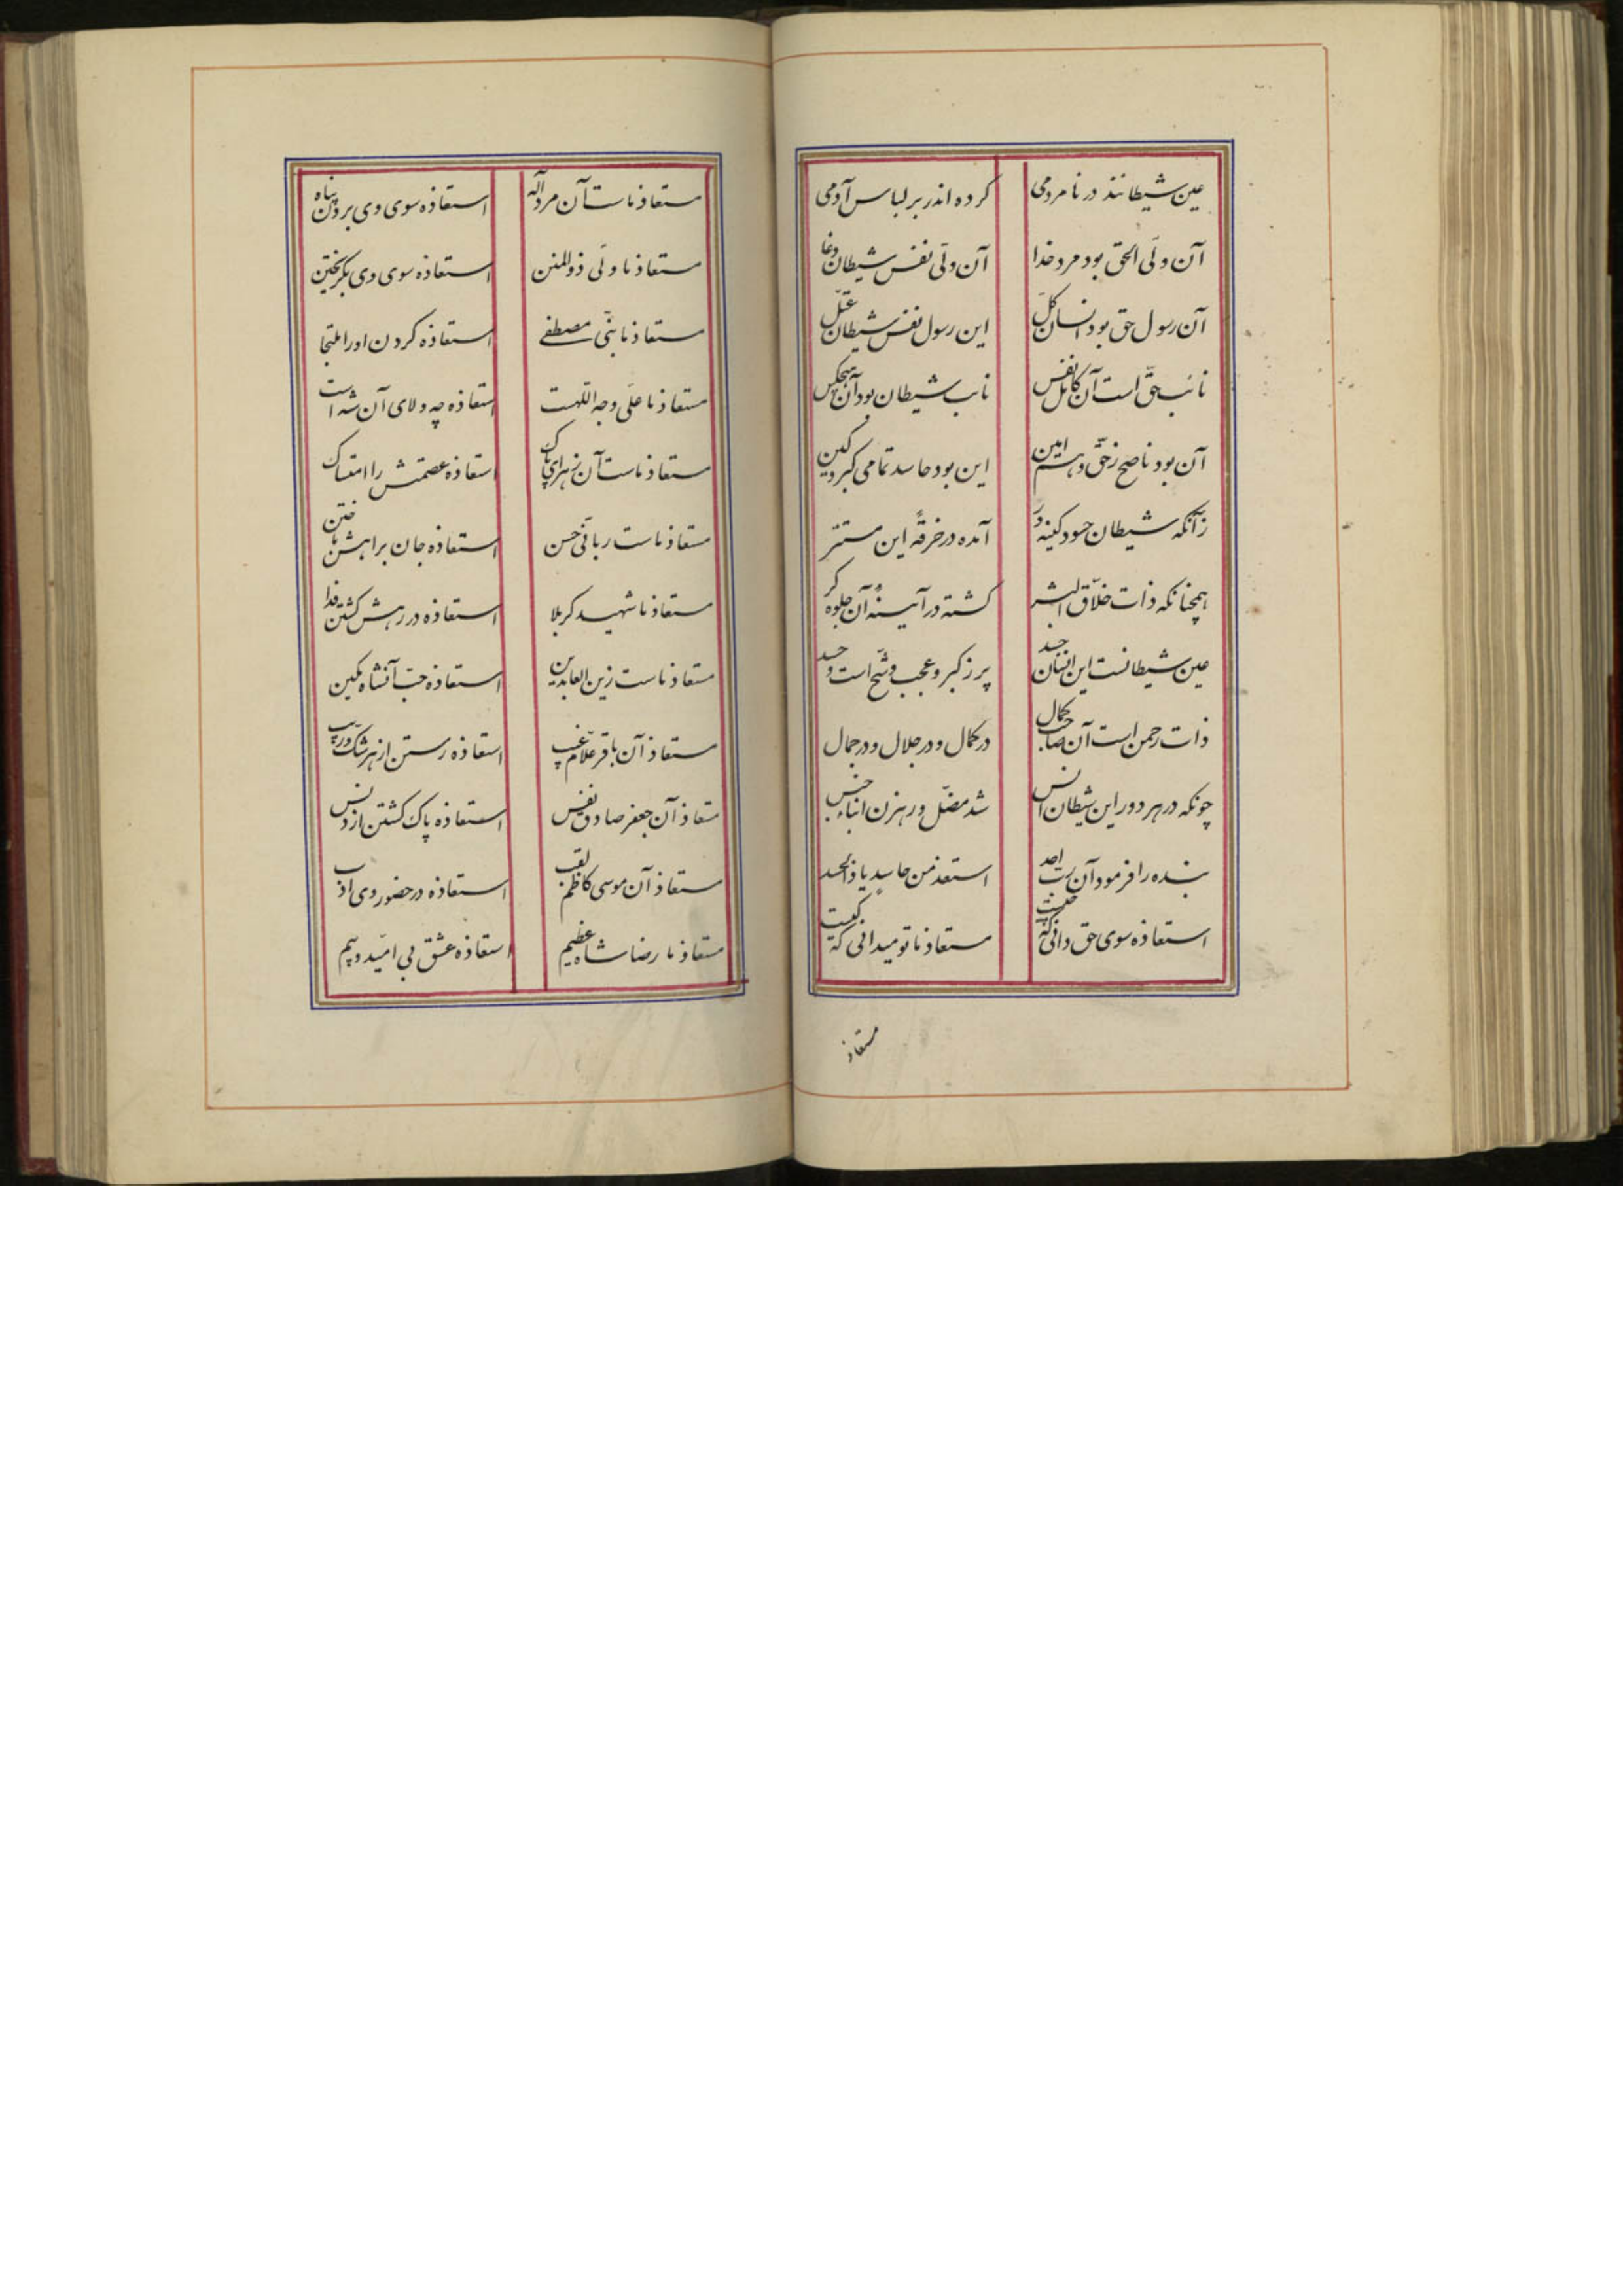 عین شیطانند در نامردمی کرده اندر بر لباس آدمی
آن ولّی الحق بود مرد خدا آن ولّی نفس شیطان دغا
آن رسول حق بود انسان کلّ این رسول نفس شیطان عتلّ
نائب حقّ است آن کامل نفس نایب شیطان بود آن هیچکس
آن بود ناصح زحقّ و هم امین این بود حاسد تمامی کبر و کین
زآنکه شیطان حسود کینه ور آمده در خرقهٔ این مستتر
همچنانکه ذات خلّاق البشر کشته در آئینهٔ آن جلوه کر
عین شیطانست این انسان جسد پر ز کبر و عجب و شّح است و حسد
ذات رحمن است آن صاحب کمال در کمال و در جلال و در جمال
چونکه در هر دور این شیطان انس شد مضّل و رهزن ابناء جنس
بنده را فرمود آن ربّ احد استعذ من حاسدٍ یا ذالحسد
استعاذه سوی حق دانی که چیست مستعاذ ما تو میدانی که کیست
مستعاذ
مستعاذ ماست آن مرد آله استعاذه سوی وی بردن پناه
مستعاذ ما ولّی ذوالمنن استعاذه سوی وی بکریختن
مستعاذ ما نبّی مصطفی استعاذه کردن او را ملتجا
مستعاذ ما علّی وجه اللّهست استعاذه چه ولای آن شه است
مستعاذ ماست آن زهرای پاک استعاذه عصمتش را امتساک
مستعاذ ماست ربانّی حسن استعاذه جان براهش باختن
مستعاذ ما شهید کربلا استعاذه در رهش کشتن فدا
مستعاذ ماست زین العابدین استعاذه حبّ آنشاه مکین
مستعاذ آن باقر علّام غیب استعاذه رستن از هر شکّ و ریب
مستعاذ آن جعفر صادق نفس استعاذه پاک کشتن از دنس
مستعاذ آن موسی کاظم لقب استعاذه در حضور وی ادب
مستعاذ ما رضا شاه عظیم استعاذه عشق بی امّید و بیم